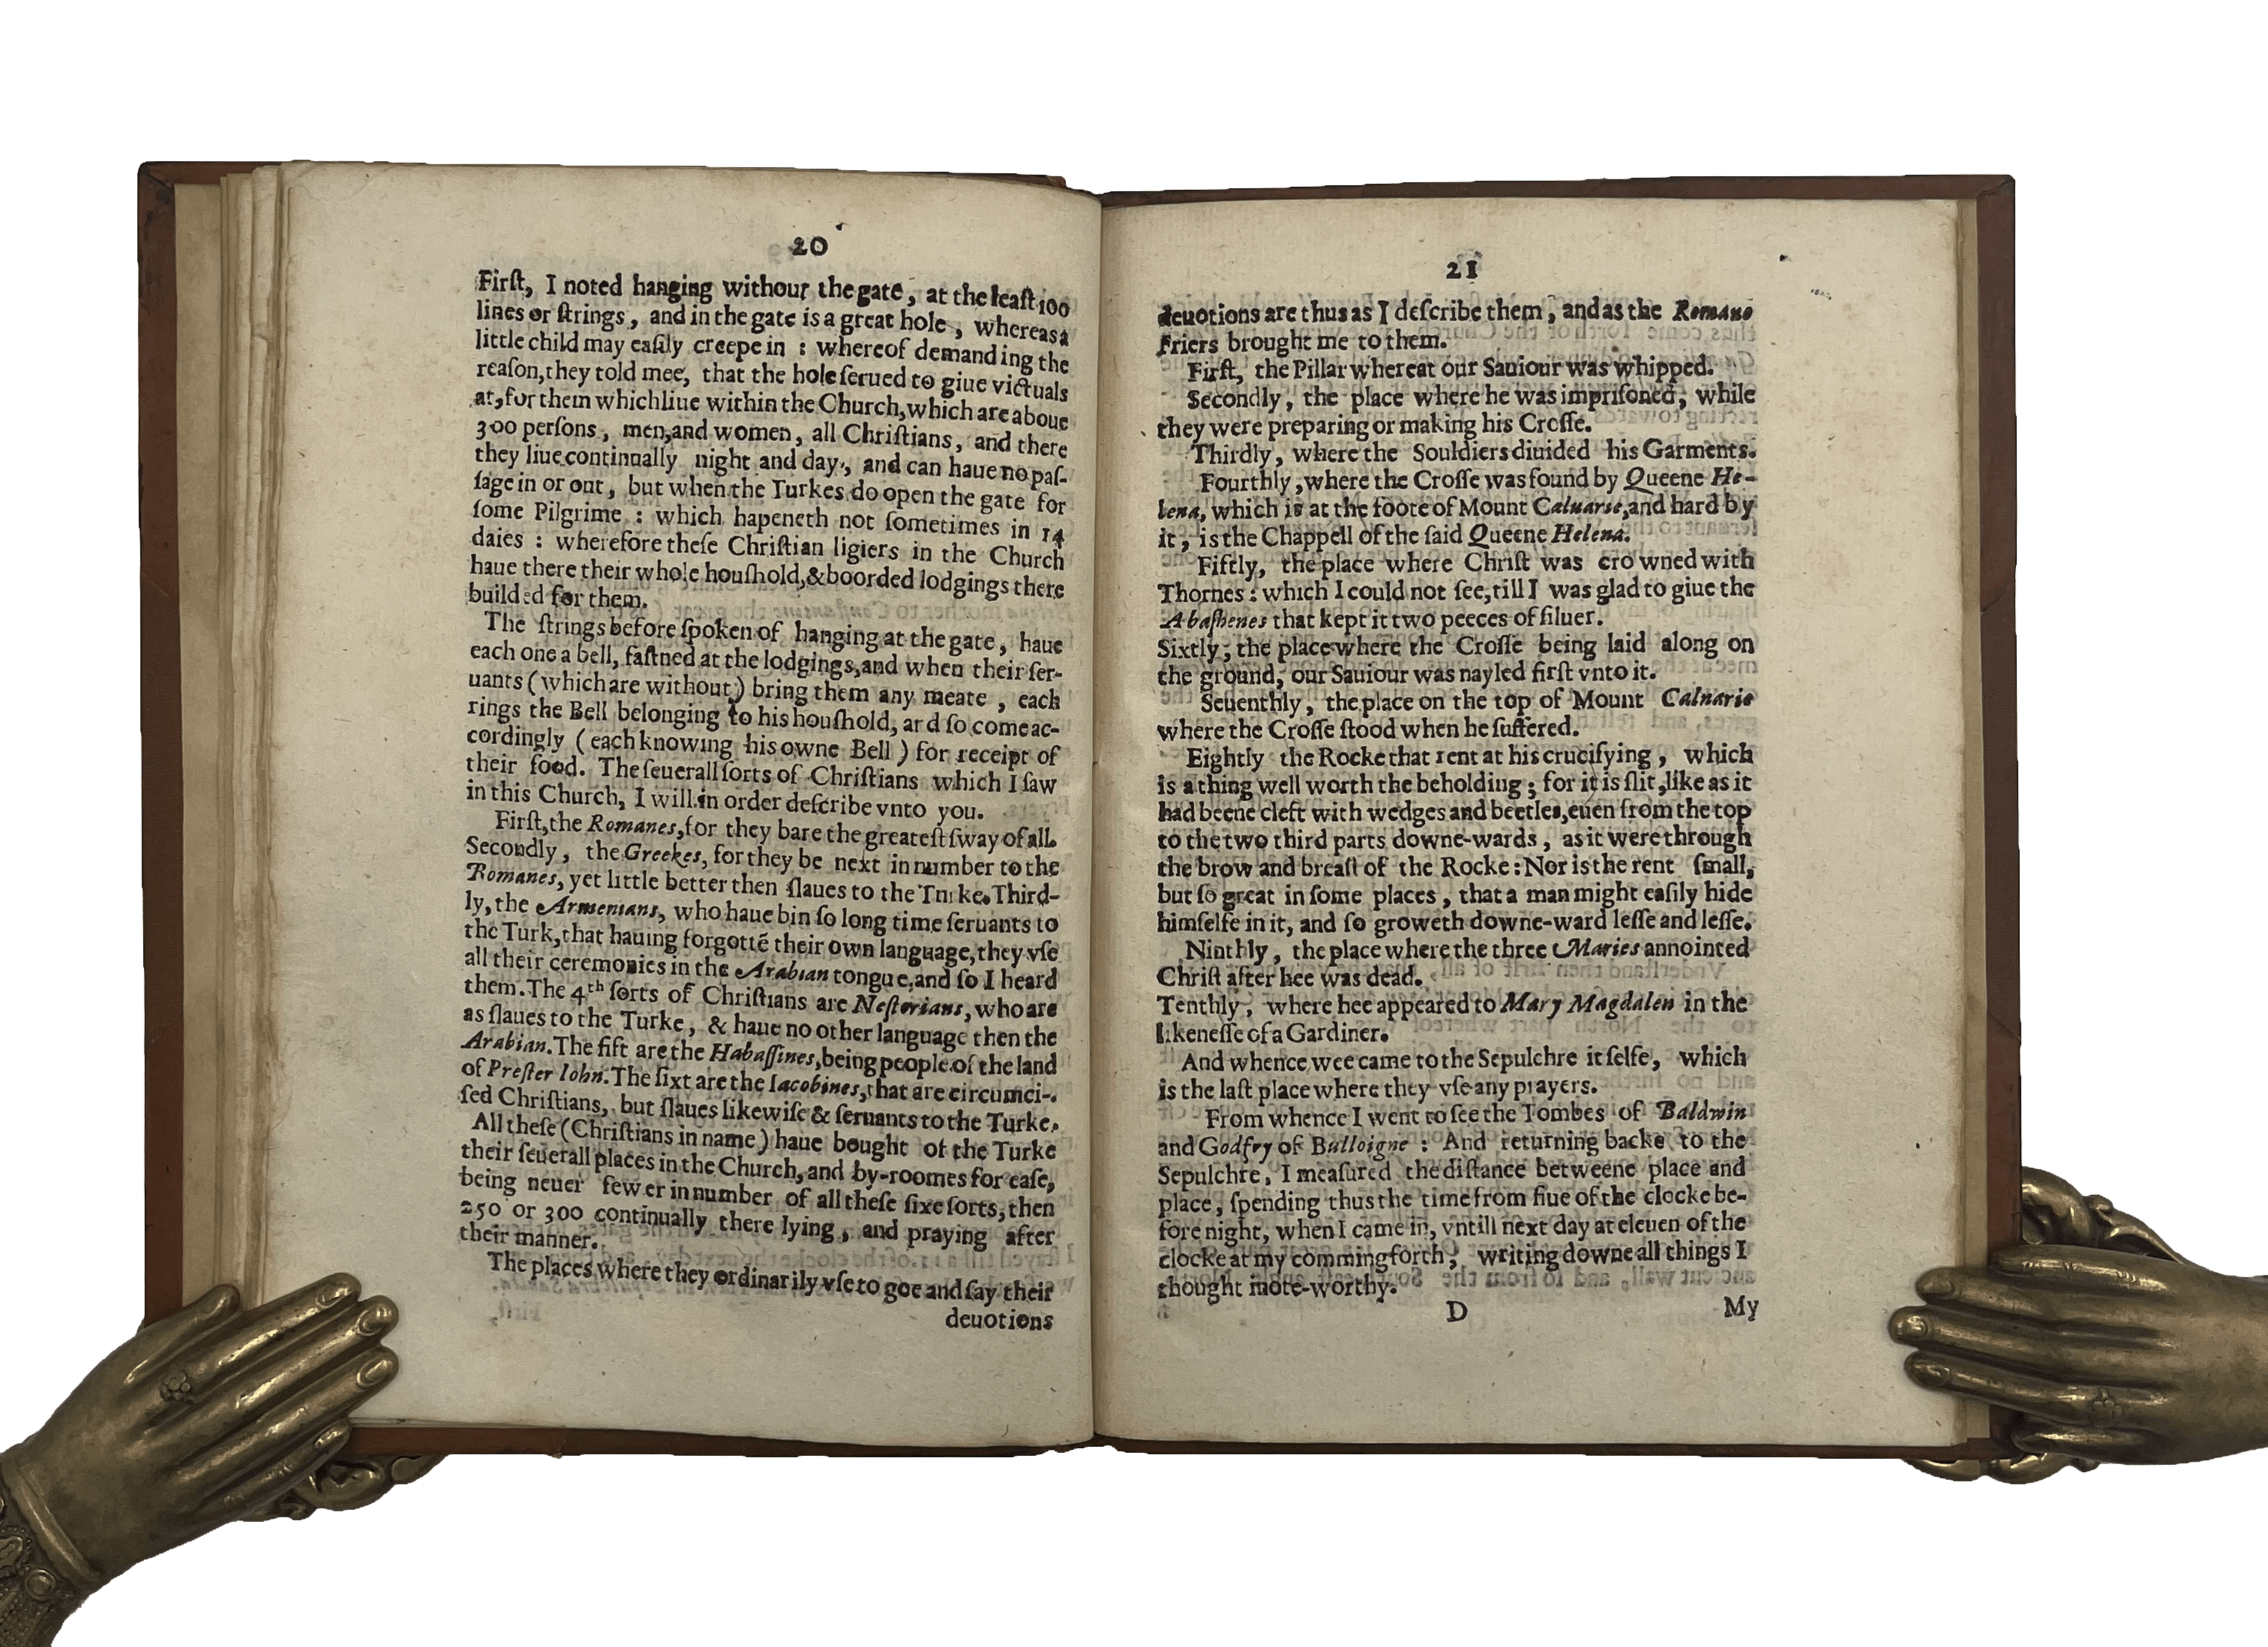 20
Firſt, I noted hanging without the gate, at the leaſt 100
lines or ſtrings, and in the gate is a great hole, whereas a
little child may eaſily creepe in : whereof demanding the
reaſon, they told mee, that the hole ſerued to giue victuals
at, for them which liue within the Church, which are aboue
300 perſons, men, and women, all Chriſtians, and there
they liue continually night and day, and can haue no paſ-
ſage in or out, but when the Turkes do open the gate for
ſome Pilgrime : which hapeneth not ſometimes in 14
daies : wherefore theſe Chriſtian ligiers in the Church
haue there their whole houſhold, & boorded lodgings there
builded for them.
The ſtrings before ſpoken of hanging at the gate, haue
each one a bell, faſtned at the lodgings, and when their ſer-
uants (which are without) bring them any meate, each
rings the Bell belonging to his houſhold, ard ſo come ac-
cordingly (each knowing his owne Bell) for receipt of
their food. The ſeuerall ſorts of Chriſtians which I ſaw
in this Church, I will in order deſcribe vnto you.
Firſt, the Romanes, for they bare the greateſt ſway of all.
Secondly, the Greekes, for they be next in number to the
Romanes, yet little better then ſlaues to the Turke. Third-
ly, the Armenians, who haue bin ſo long time ſeruants to
the Turk, that hauing forgottẽ their own language, they vſe
all their ceremonies in the Arabian tongue, and ſo I heard
them. The 4th ſorts of Chriſtians are Neſtorians, who are
as ſlaues to the Turke, & haue no other language then the
Arabian. The fift are the Habaſſines, being people of the land
of Preſter Iohn. The ſixt are the Iacobines, that are circumci-
ſed Chriſtians, but ſlaues likewiſe & ſeruants to the Turke.
All theſe (Chriſtians in name) haue bought of the Turke
their ſeuerall places in the Church, and by-roomes for eaſe,
being neuer fewer in number of all theſe ſixe ſorts, then
250 or 300 continually there lying, and praying after
their manner.
The places where they ordinarily vſe to goe and ſay their
deuotions
21
deuotions are thus as I deſcribe them, and as the Romane
Friers brought me to them.
Firſt, the Pillar whereat our Sauiour was whipped.
Secondly, the place where he was impriſoned, while
they were preparing or making his Croſſe.
Thirdly, where the Souldiers diuided his Garments.
Fourthly, where the Croſſe was found by Queene He-
lena, which is at the foote of Mount Caluarie, and hard by
it, is the Chappell of the ſaid Queene Helena.
Fiftly, the place where Chriſt was crowned with
Thornes : which I could not ſee, till I was glad to giue the
Abaſhenes that kept it two peeces of ſiluer.
Sixtly, the place where the Croſſe being laid along on
the ground, our Sauiour was nayled firſt vnto it.
Seuenthly, the place on the top of Mount Caluarie
where the Croſſe ſtood when he ſuffered.
Eightly the Rocke that rent at his crucifying, which
is a thing well worth the beholding ; for it is ſlit, like as it
had beene cleft with wedges and beetles, euen from the top
to the two third parts downe-wards, as it were through
the brow and breaſt of the Rocke : Nor is the rent ſmall,
but ſo great in ſome places, that a man might eaſily hide
himſelfe in it, and ſo groweth downe-ward leſſe and leſſe.
Ninthly, the place where the three Maries annointed
Chriſt after hee was dead.
Tenthly, where hee appeared to Mary Magdalen in the
likeneſſe of a Gardiner.
And whence wee came to the Sepulchre it ſelfe, which
is the laſt place where they vſe any prayers.
From whence I went to ſee the Tombes of Baldwin
and Godfry of Bulloigne : And returning backe to the
Sepulchre, I meaſured the diſtance betweene place and
place, ſpending thus the time from fiue of the clocke be-
fore night, when I came in, vntill next day at eleuen of the
clocke at my comming forth, writing downe all things I
thought mote-worthy.
D My